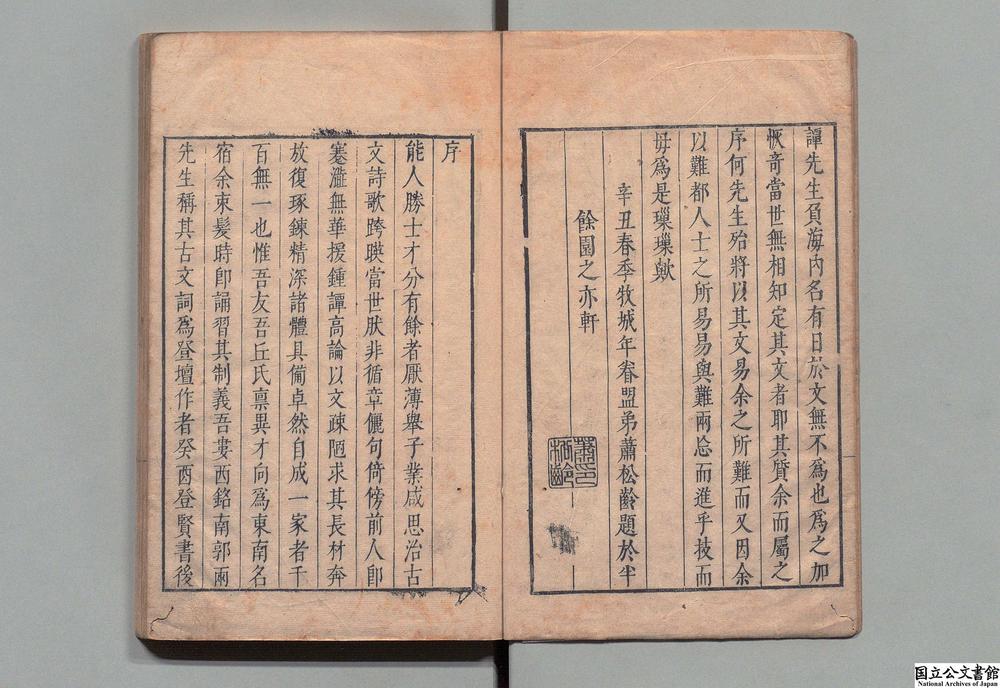 譚先生負海內名有日於文無不為也為之加
恢奇當世無相知定其文者耶其貿余而屬之
序何先生殆將以其文易余之所難而又因余
以難都人士之所易易與難兩忘而進乎技而
毋為是璅璅歟
辛丑春季牧城年眷盟弟蕭松齡題於半
餘園之亦軒
蕭印松齡
序
能人勝士才分有餘者厭薄舉子業咸思治古
文詩歌跨暎當世肰非循章儷句倚傍前人即
蹇澁無華援鍾譚高論以文疎陋求其長材奔
放復琢鍊精深諸體具備卓然自成一家者千
百無一也惟吾友吾丘氏稟異才向為東南名
宿余束髮時即誦習其制義吾婁西銘南郭兩
先生稱其古文詞為登壇作者癸酉登賢書後
国立公文書館
National Archives of Japan